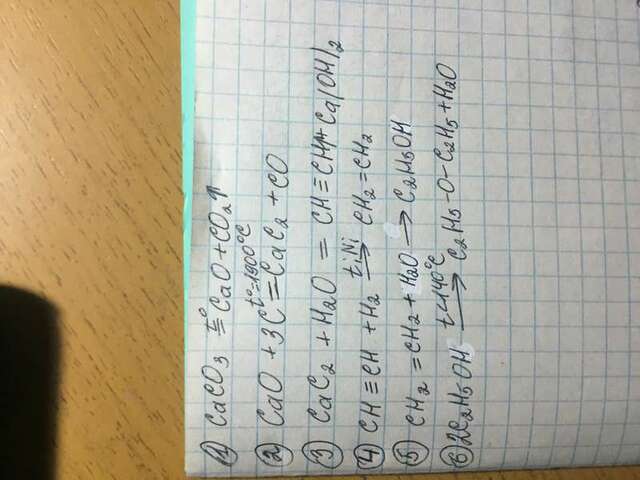 ① CaCO₃ =(t°) CaO + CO₂↑
② CaO + 3C =(t°=1900°C) CaC₂ + CO
③ CaC₂ + H₂O = CH≡CH + Ca(OH)₂
④ CH≡CH + H₂ →(t; Ni) CH₂=CH₂
⑤ CH₂=CH₂ + H₂O → C₂H₅OH
⑥ 2C₂H₅OH →(t<140°C) C₂H₅-O-C₂H₅ + H₂O